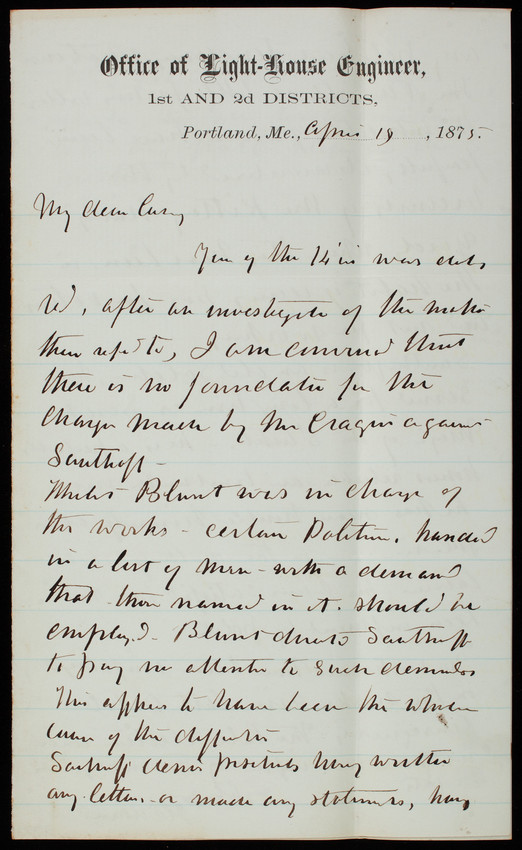 Office of Light-House Engineer,
1st AND 2d DISTRICTS,
Portland, Me., April 19, 1875.
My dear Casey
Yours of the 14 was duly
rd, after an investigate of the matter
there refd to, I am convinced that
there is no foundation for the
charge made by Mr Cragin against
Southoff -
Whilst Blunt was in charge of
the works - certain Politician, handed
in a list of men - with a demand
that those named in it should be
employed - Blunt directed Southoff
to pay no attention to such demands
This appears to have been the whole
cause of the difficulty
Southoff denies positively having written
any letters or made any statements, having